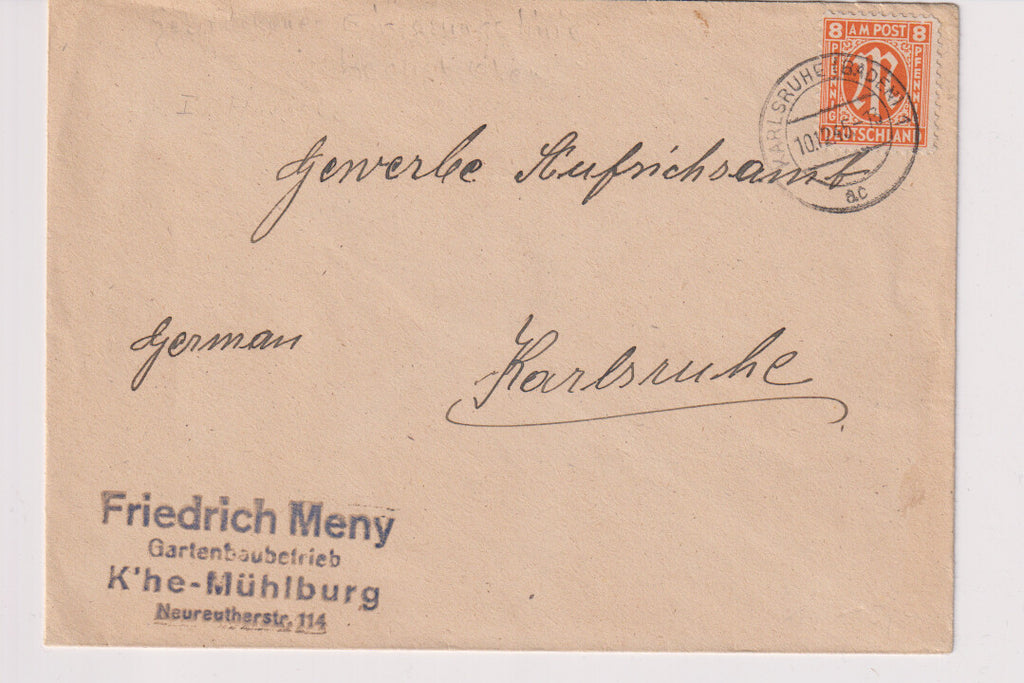 8 AM POST 8
PFENNIG PFENNIG
DEUTSCHLAND
KARLSRUHE (BADEN)
10.12.45
ac
Gewerbe Aufsichsamt
German
Karlsruhe
Friedrich Meny
Gartenbaubetrieb
K'he-Mühlburg
Neureutherstr. 114